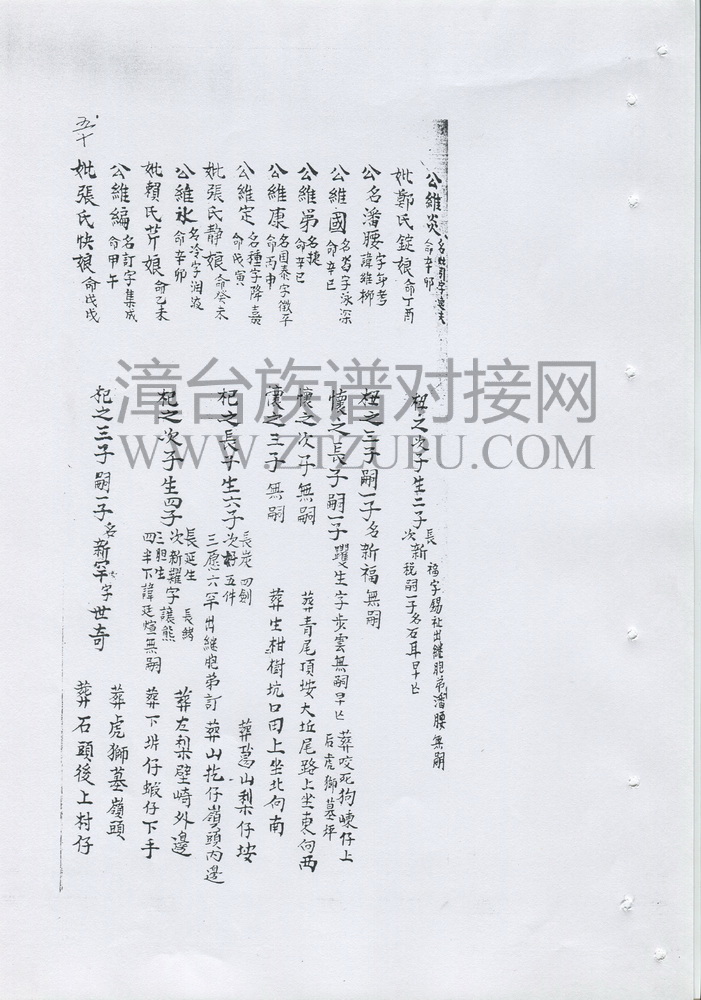 公維炎 命辛卯
杻之次子生二子 長福字錫祉出継胞弟潘腰無嗣 次新税嗣一子名石耳早亡
妣鄭氏錠娘 命丁酉
公名潘腰 字年考 諱維柳
杻之三子嗣一子名新福無嗣
公維國 名沓字泳深 命辛巳
懷之長子嗣一子躍生字步雲無嗣早亡 葬咬死狗崠仔上 后虎獅墓坪
公維弟 名捷 命辛巳
懷之次子無嗣 葬青尾頂垵大坵尾路上坐東向西
公維康 名国泰字徵平 命丙申
懷之三子無嗣 葬生柑樹坑口田上坐北向南
公維定 名種字降嘉 命戊寅
杞之長子生六子 長炭 四劍 次 五件 三愿 六罕出継胞弟訂 葬葛山梨仔垵
妣張氏靜娘 命癸未
葬山扢仔嶺頭內邊
公維永 名冷字润波 命辛卯
杞之次子生四子 長延生 次新羅字讓熊 三胆生 四半下諱廷煊無嗣 葬左梨壁崎外邊
妣賴氏芹娘 命乙未
葬下坵仔蝦仔下手
公維編 名訂字集成 命甲午
杞之三子嗣一子名新罕字世奇 葬虎獅墓嶺頭
妣張氏快娘 命戊戌
葬石頭後上村仔
五十
漳台族谱对接网
WWW.ZTZUPU.COM